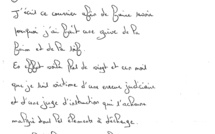 J'écris ce courrier afin de faire savoir
pourquoi j'ai fait une grève de la
faim et de la soif.
En effet voilà plus de vingt et un mois
que je suis victime d'une erreur judiciaire
et d'un juge d'instruction qui s'acharne
malgré tous les éléments à décharge.